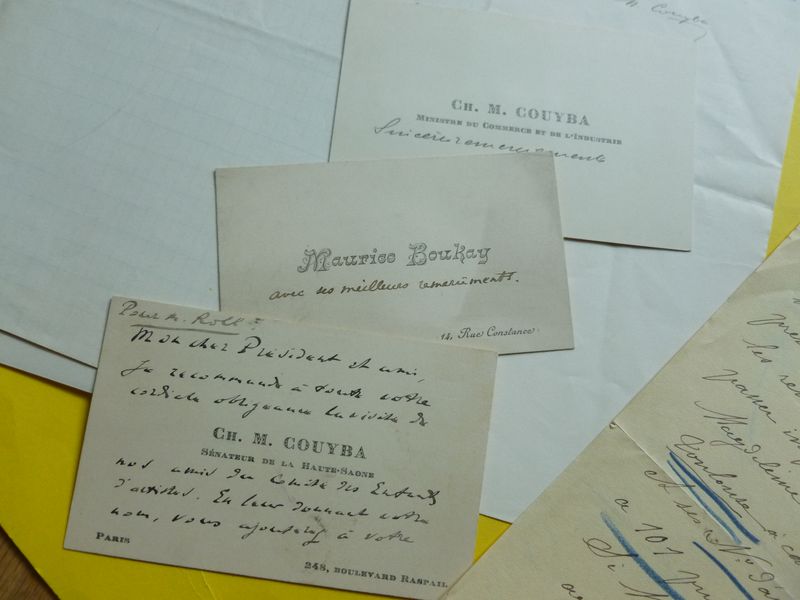 Couyba
CH. M. COUYBA
MINISTRE DU COMMERCE ET DE L'INDUSTRIE
Sincères remerciements
Maurice Boukay
avec ses meilleurs remerciments.
14, Rue Constance
Pour M. Roll ?
Mon cher Président et ami,
Je recommande à toute votre
cordiale obligeance la visite de
CH. M. COUYBA
SÉNATEUR DE LA HAUTE-SAONE
nos amis du Comité des Enfants
d'artistes. En leur donnant votre
nom, vous ajouterez à votre
PARIS
248, BOULEVARD RASPAIL
les
passer
Magdeleine
Toulouse à
et ses
a 101
Si